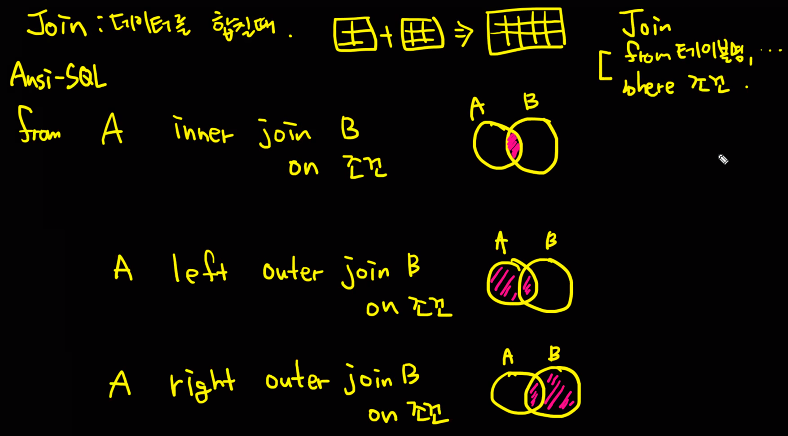 Join : 데이터를 합칠때.
Join
from 테이블명, ...
where 조건.
Ansi-SQL
from A inner join B
on 조건
A B
A left outer join B
on 조건
A B
A right outer join B
on 조건
A B